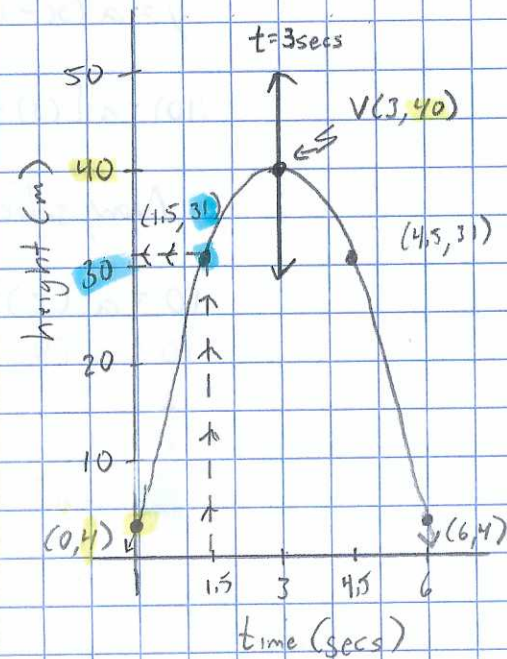 t=3secs
50
V(3,40)
40
(1.5, 31)
(4.5, 31)
30
height (m)
20
10
(0,4)
(6,4)
1.5 3 4.5 6
time (secs)